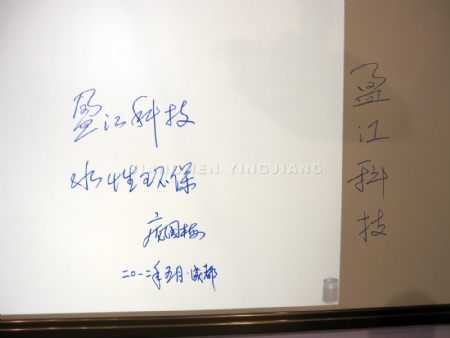 盈江科技
水性环保
JIANGMEN YINGJIANG
二〇一二年五月·成都
盈江科技